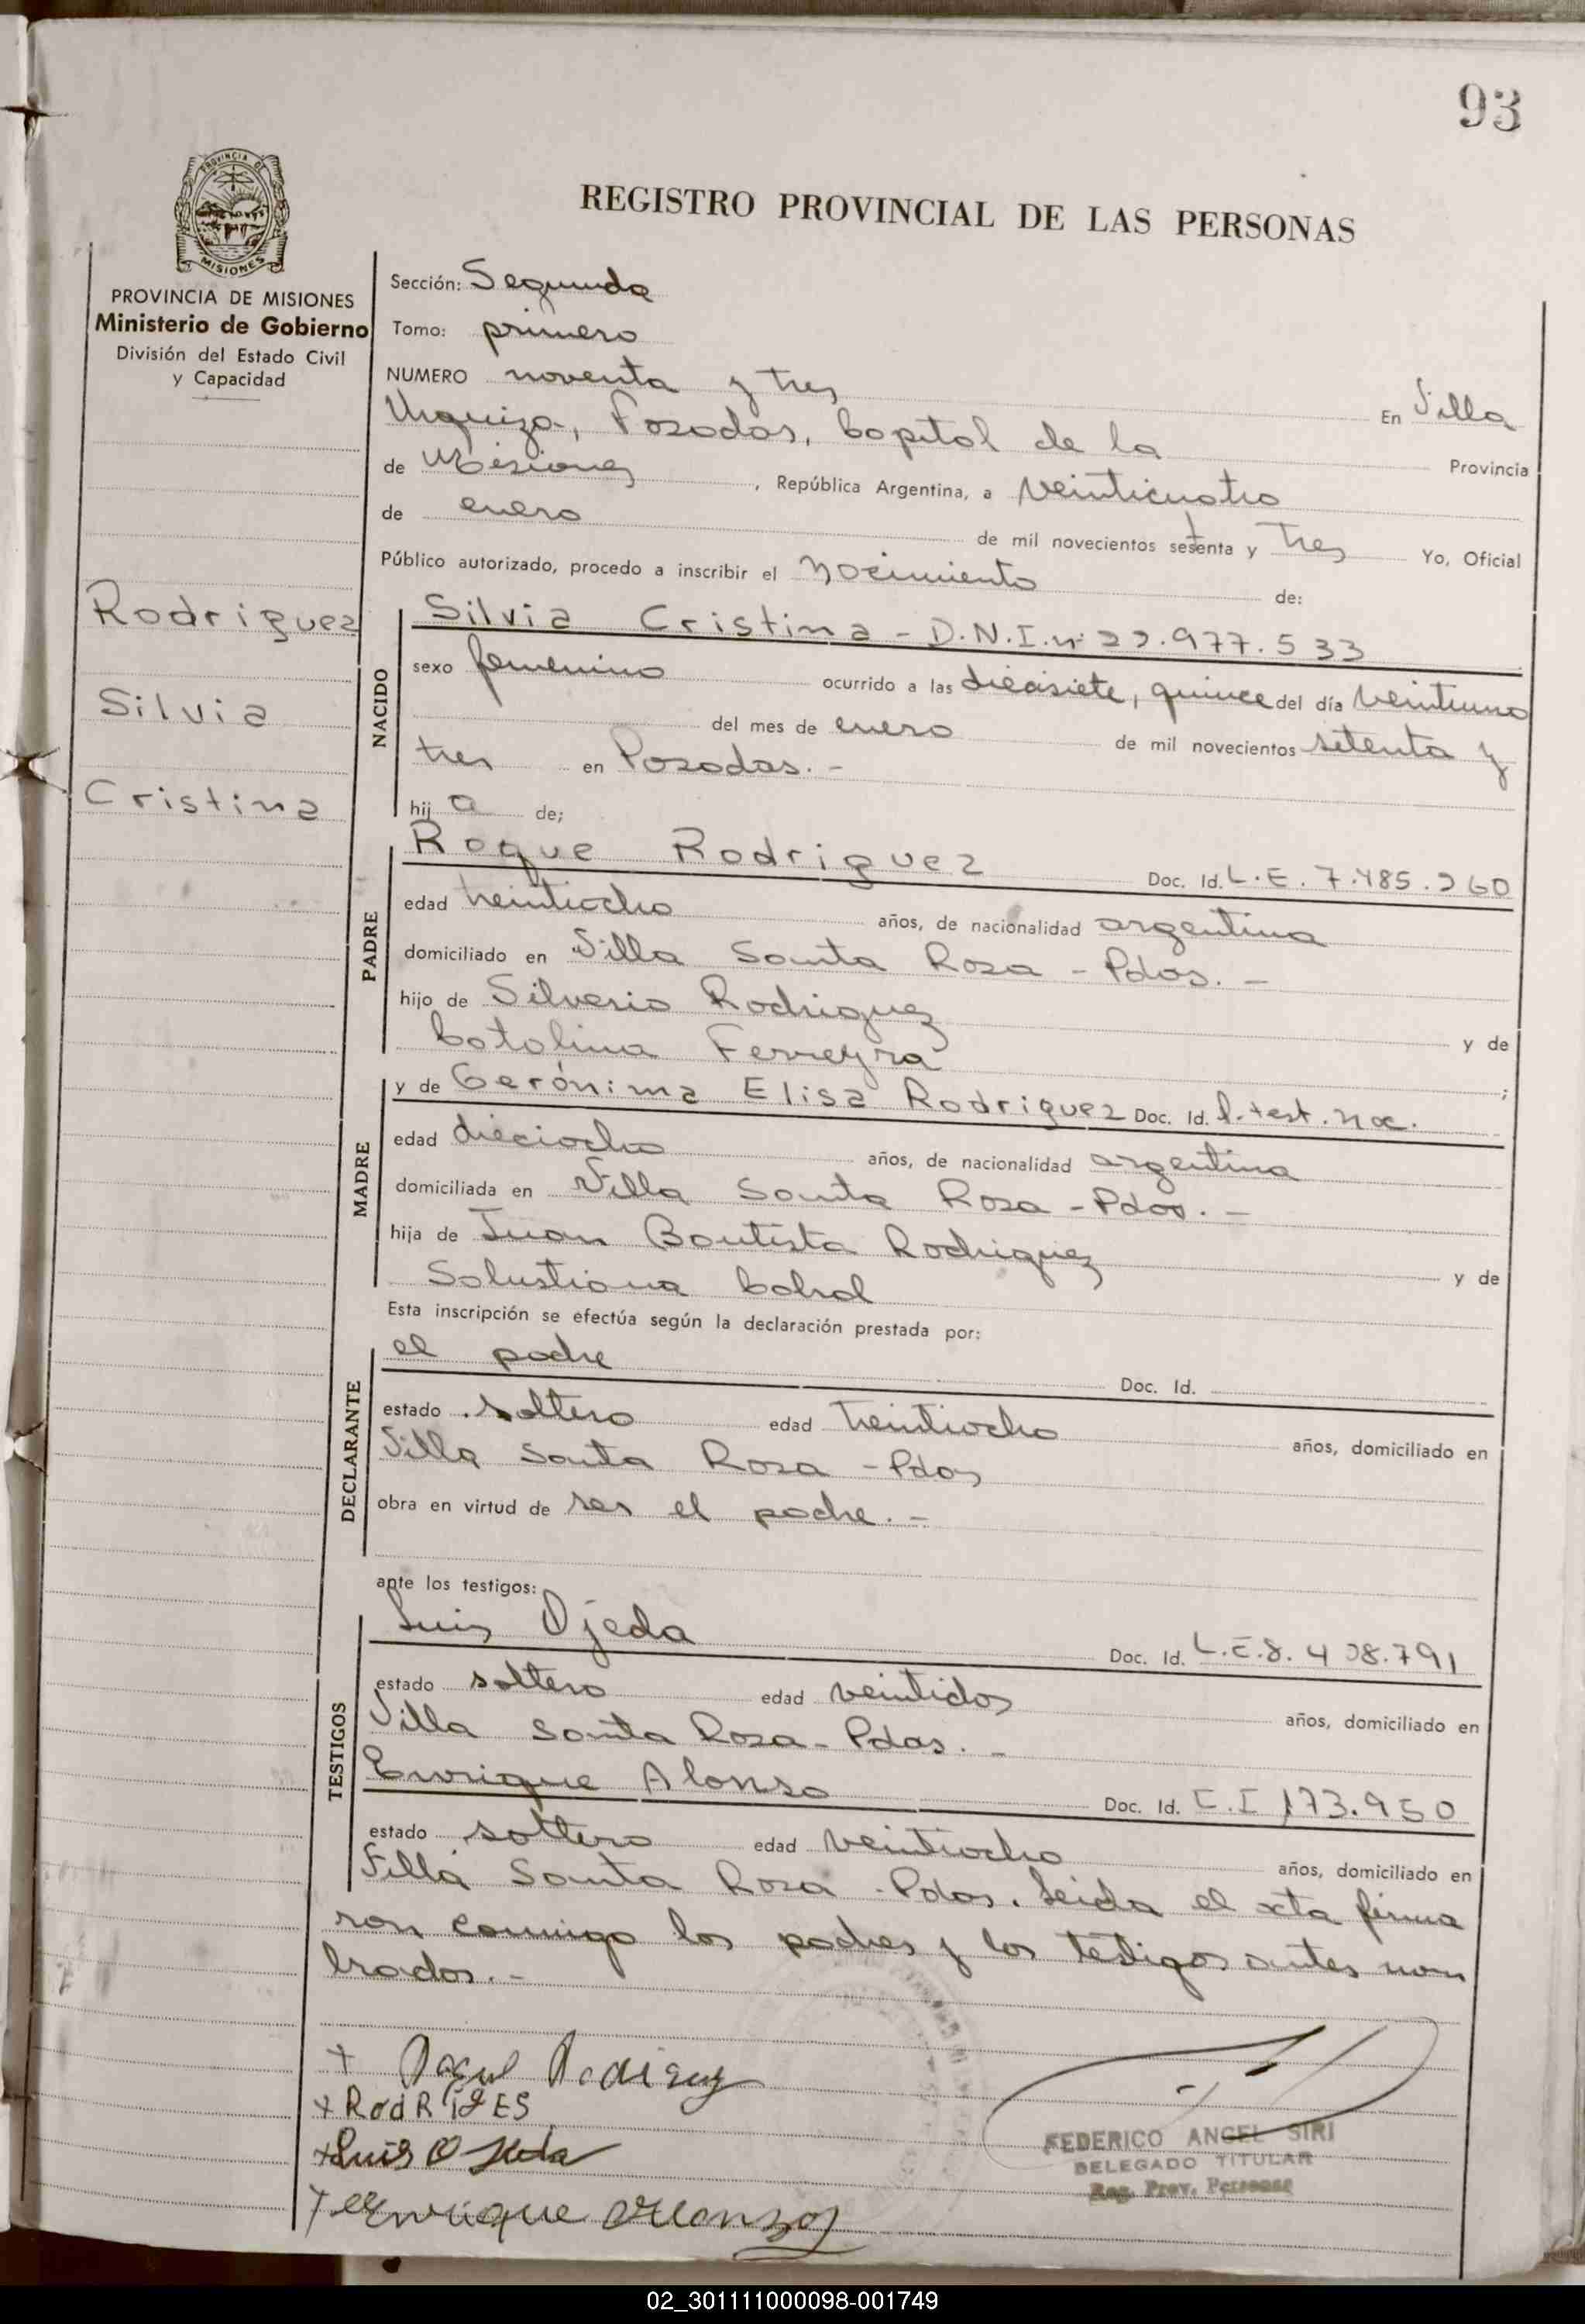 93
PROVINCIA DE
MISIONES
REGISTRO PROVINCIAL DE LAS PERSONAS
PROVINCIA DE MISIONES
Ministerio de Gobierno
División del Estado Civil
y Capacidad
Rodriguez
Silvia
Cristina
Sección: Segunda
Tomo: primero
NUMERO noventa y tres En Villa
Urquiza, Posadas, Capital de la Provincia
de Misiones, República Argentina, a veinticuatro
de enero de mil novecientos setenta y tres Yo, Oficial
Público autorizado, procedo a inscribir el nacimiento de:
NACIDO
Silvia Cristina - D.N.I. nº 22.977.533
sexo femenino ocurrido a las diecisiete, quince del día veintiuno
del mes de enero de mil novecientos setenta y
tres en Posadas. -
hij a de;
PADRE
Roque Rodriguez Doc. Id. L.E. 7.485.260
edad treintiocho años, de nacionalidad argentina
domiciliado en Villa Santa Rosa - Pdas. -
hijo de Silverio Rodriguez y de
Catalina Ferreyra ;
MADRE
y de Gerónima Elisa Rodriguez Doc. Id. p. test. nac.
edad dieciocho años, de nacionalidad argentina
domiciliada en Villa Santa Rosa - Pdas. -
hija de Juan Bautista Rodriguez y de
Salustiana Cabral
Esta inscripción se efectúa según la declaración prestada por:
DECLARANTE
el padre Doc. Id.
estado soltero edad treintiocho años, domiciliado en
Villa Santa Rosa - Pdas
obra en virtud de ser el padre. -
ante los testigos:
TESTIGOS
Luis Ojeda Doc. Id. L.E. 8.408.791
estado soltero edad veintidos años, domiciliado en
Villa Santa Rosa - Pdas. -
Enrique Alonso Doc. Id. C.I 173.950
estado soltero edad veintiocho años, domiciliado en
Villa Santa Rosa - Pdas. Leida el acta firma
ron conmigo los padres y los testigos antes nom
brados. -
+ RodRigES
+ Luis Ojeda
+ Enrique Alonzo
FEDERICO ANGEL SIRI
DELEGADO TITULAR
Reg. Prov. Personas
02_301111000098-001749